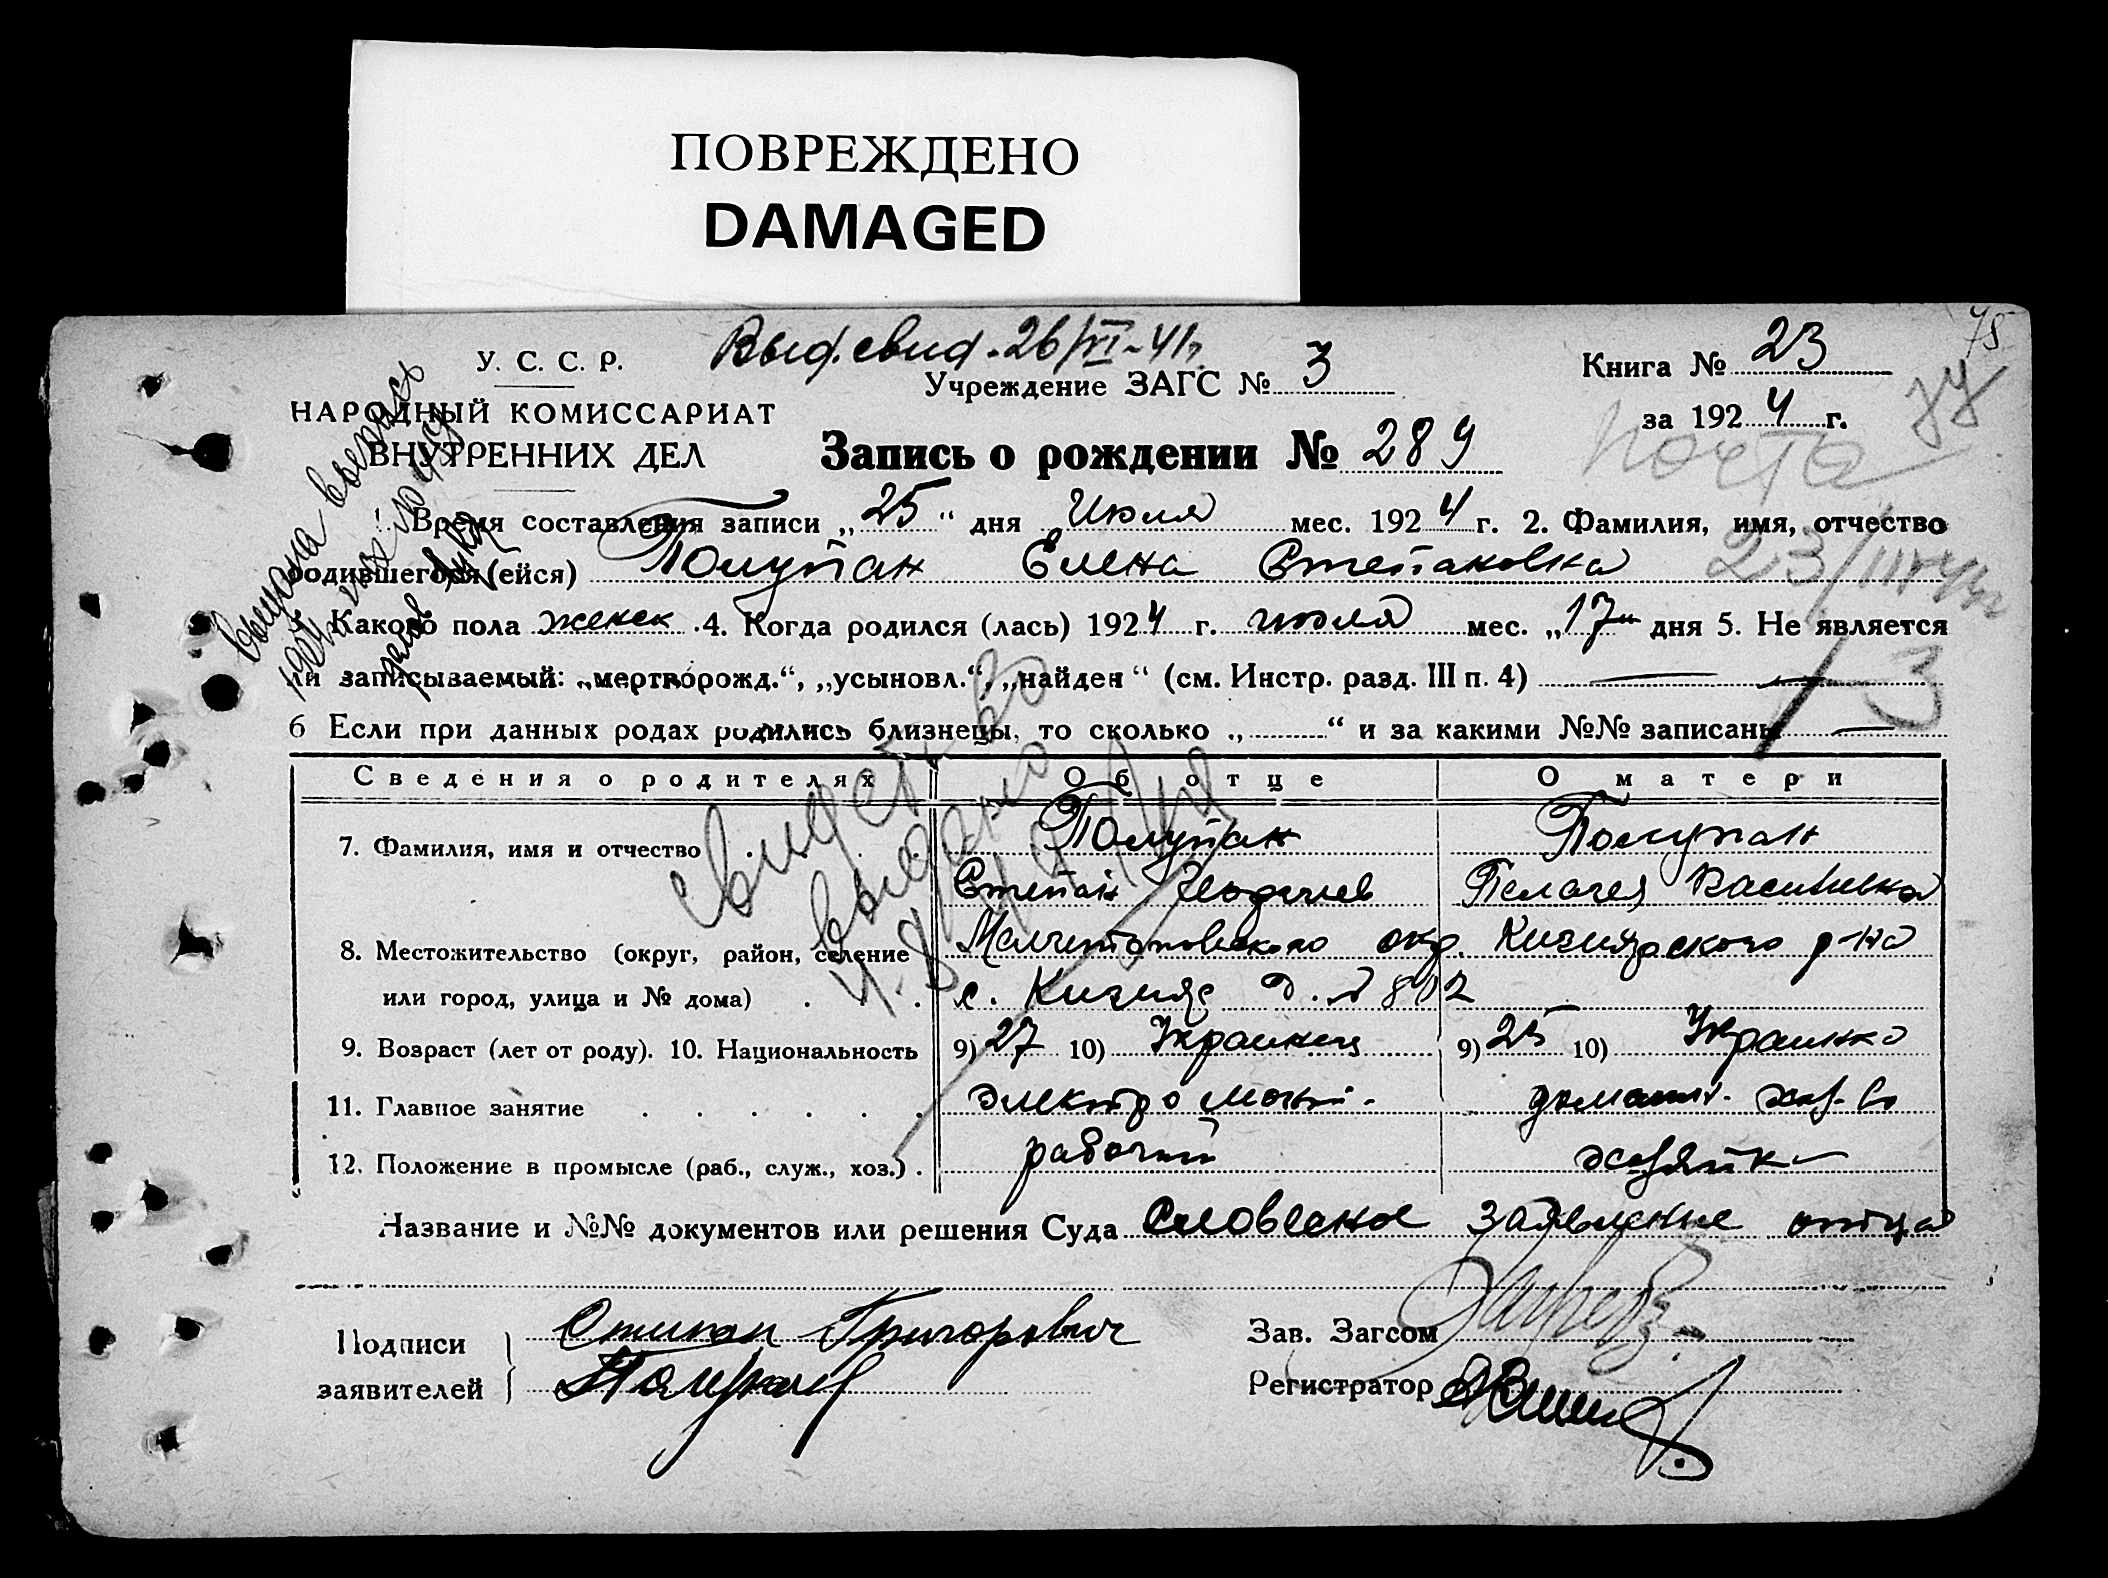 ПОВРЕЖДЕНО
DAMAGED
Выд. свид. 26/VI-41г.
У. С. С. Р.
НАРОДНЫЙ КОМИССАРИАТ
ВНУТРЕННИХ ДЕЛ
Учреждение ЗАГС № 3
Книга № 23
за 1924 г.
75
77
Запись о рождении № 289
почта
1. Время составления записи „25“ дня Июля мес. 1924 г. 2. Фамилия, имя, отчество
родившегося (ейся) Полупан Елена Степановна
23/III
3. Каково пола женск. 4. Когда родился (лась) 1924 г. июля мес. „17“ дня 5. Не является
ли записываемый: „мертворожд.“, „усыновл.“, „найден“ (см. Инстр. разд. III п. 4) —
3
6 Если при данных родах родились близнецы, то сколько „.....“ и за какими №№ записаны —
выдана выпись
свидет-во
выдано
Сведения о родителях Об отце О матери
7. Фамилия, имя и отчество Полупан Полупан
Степан Пелагея Василивна
8. Местожительство (округ, район, селение Мелитопольского окр. Кизиярского р-на
или город, улица и № дома) с. Кизияр д. №
9. Возраст (лет от роду). 10. Национальность 9) 27 10) Украинец 9) 25 10) Украинка
11. Главное занятие электро домашн. хоз-во
12. Положение в промысле (раб., служ., хоз.) рабочий хозяйка
Название и №№ документов или решения Суда Словесное заявление отца
Подписи Степан Григорович
заявителей Полупан
Зав. Загсом
Регистратор